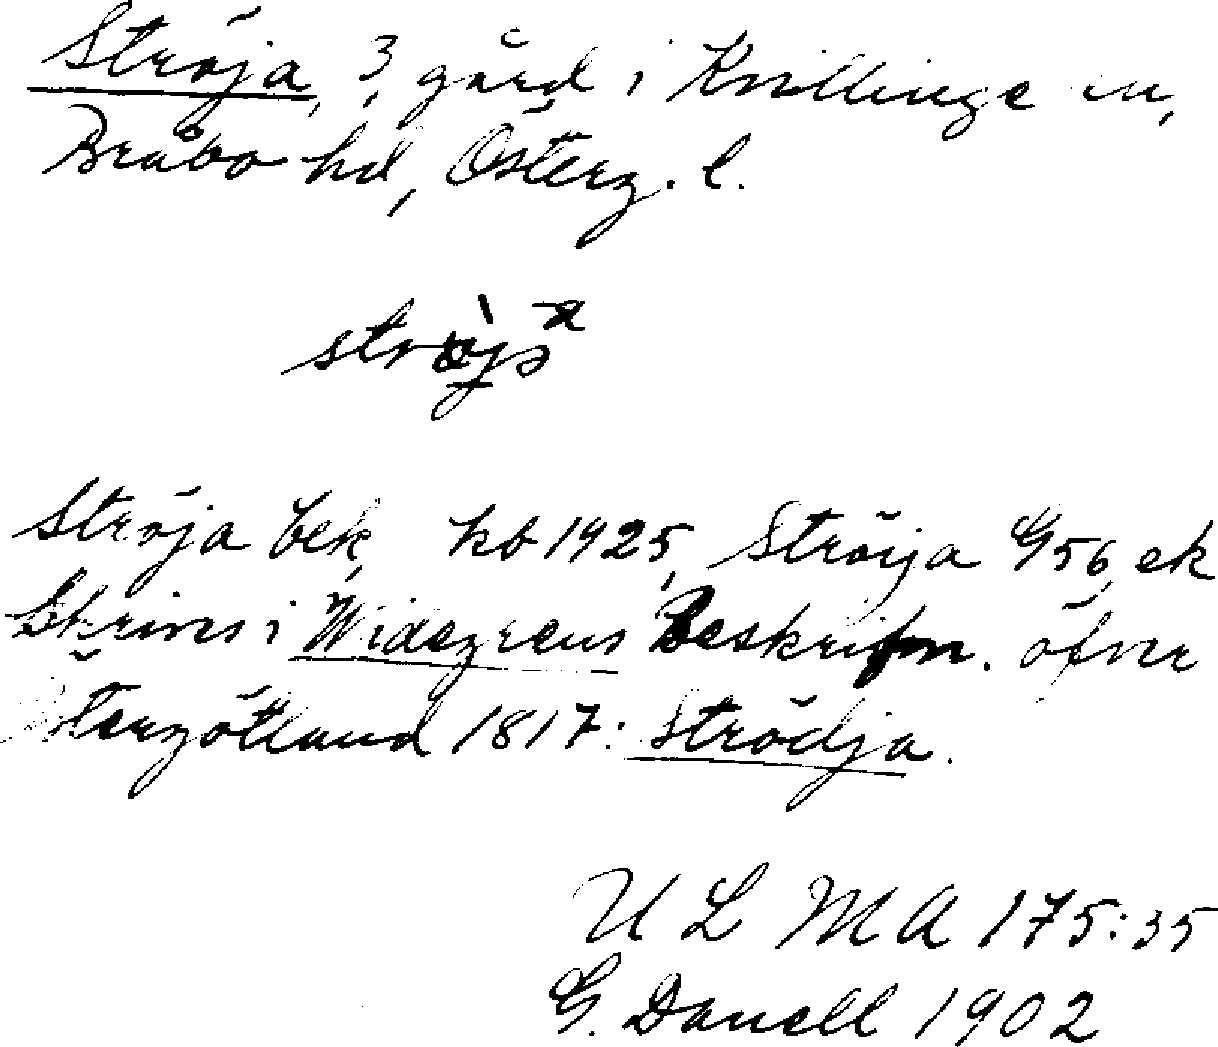 Ströja, 3, gård i Kvillinge sn,
Bråbo hd, Österg. l.
ströja
Ströja bek, kb 1925, Ströija G 56, ek
Skrives i Widegrens Beskrifn. öfver
Östergötland 1817: Strödja.
U L M A 175:35
G. Danell 1902